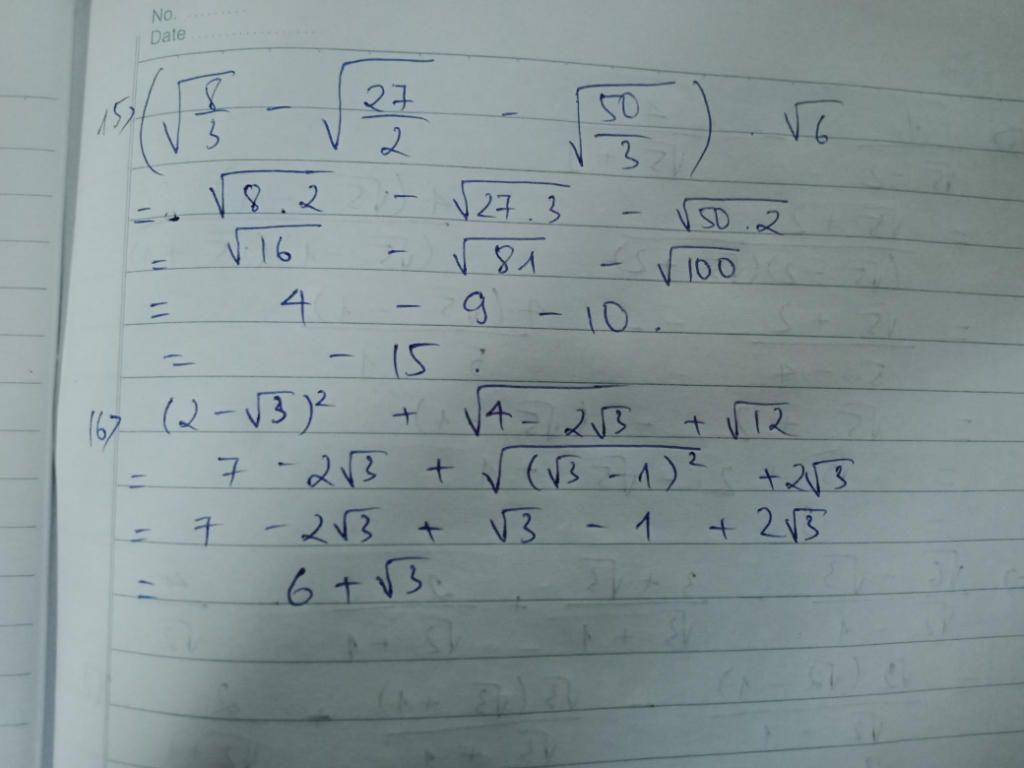 No. ..........
Date ....................
15) (√(8/3) - √(27/2) - √(50/3)) . √6
= √(8.2) - √(27.3) - √(50.2)
= √16 - √81 - √100
= 4 - 9 - 10.
= - 15 :
16) (2 - √3)² + √(4 - 2√3) + √12
= 7 - 2√3 + √((√3 - 1)²) + 2√3
= 7 - 2√3 + √3 - 1 + 2√3
= 6 + √3